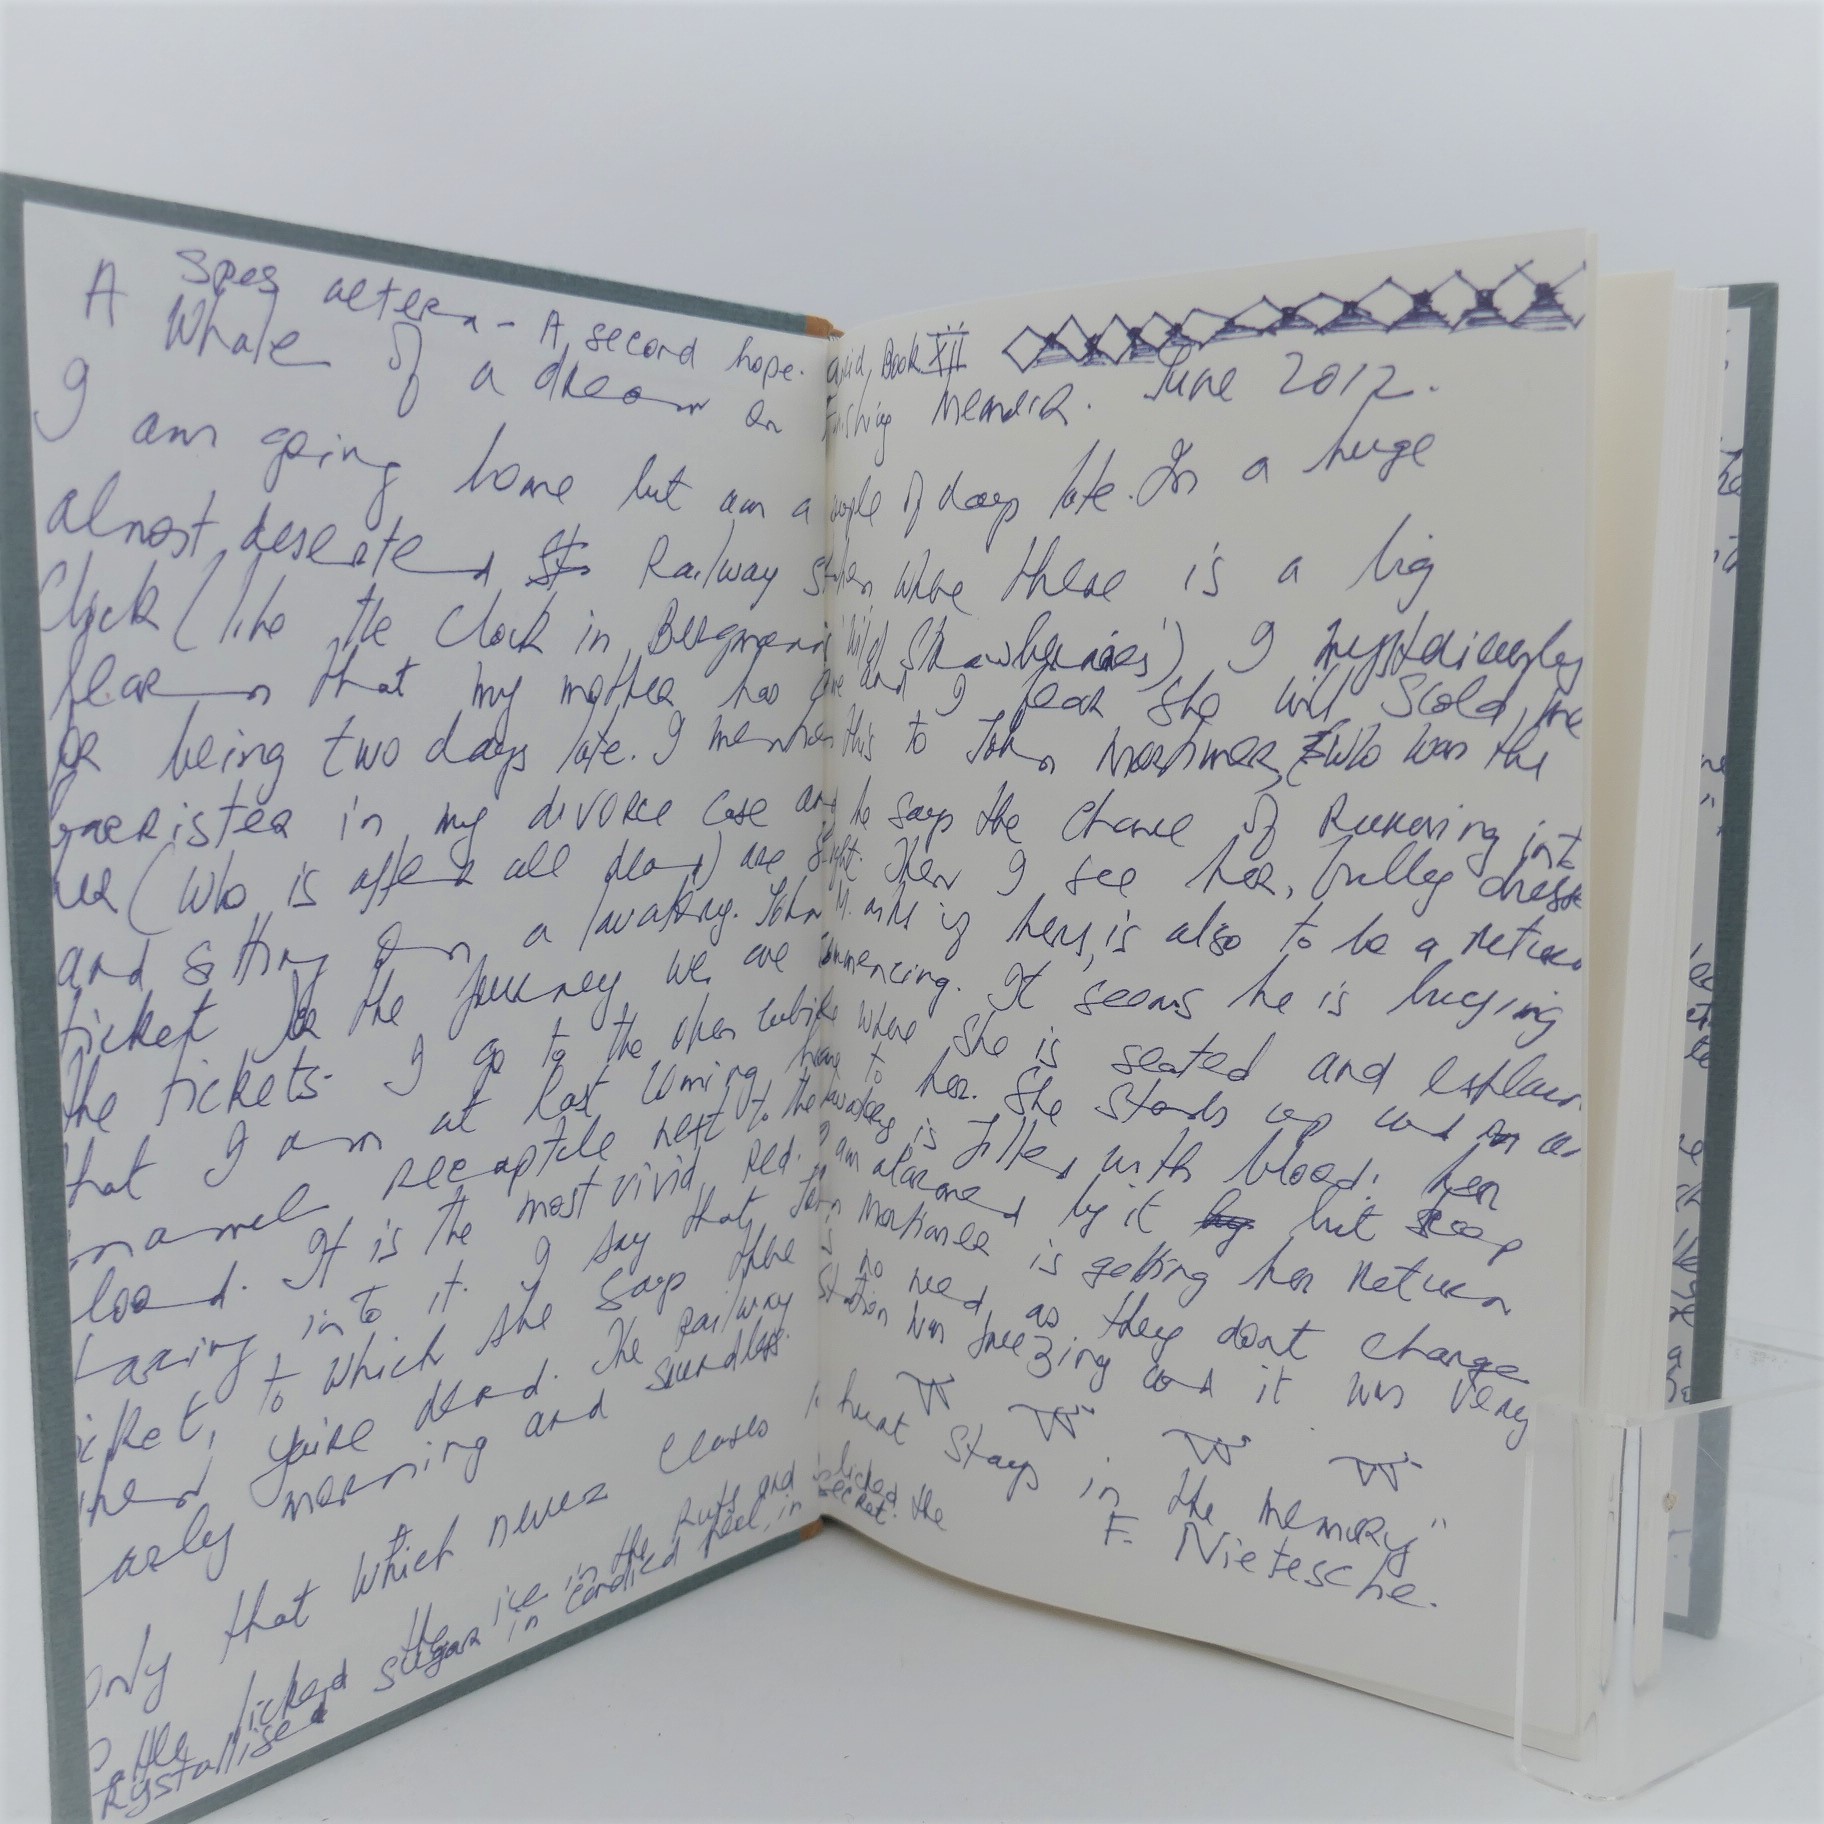 Spes altera - A second hope. Book XII
A Whale of a dream on finishing Memoir. June 2012.
I am going home but am a couple of days late. In a huge
almost deserted Railway station where there is a big
Clock (like the Clock in Bergman's 'Wild Strawberries') I mysteriously
learn that my mother has and I fear she will scold me
for being two days late. I mention this to John Mortimer, (who was the
barrister in my divorce case and he says the chance of Running into
her (who is after all dead) are slight. Then I see her, fully dressed
and sitting on a lavatory. John M. asks if hers, is also to be a return
ticket for the journey we are commencing. It seems he is buying
the tickets. I go to the other cubicle where she is seated and explain
that I am at last coming home to her. She stands up and an
enamel receptacle next to the lavatory is filled with blood. her
blood. It is the most vivid, Red. I am alarmed by it but keep
gazing into it. I say that John Mortimer is getting her return
ticket, to which she says there is no need, as they dont change
when you're dead. The Railway Station was freezing and it was very
early morning and soundless.
only that which never ceases to hurt stays in the memory"
F. Nietesche.
cattle licked the ice in the Ruts and licked the
krystallised sugar in candied peel, in secret.